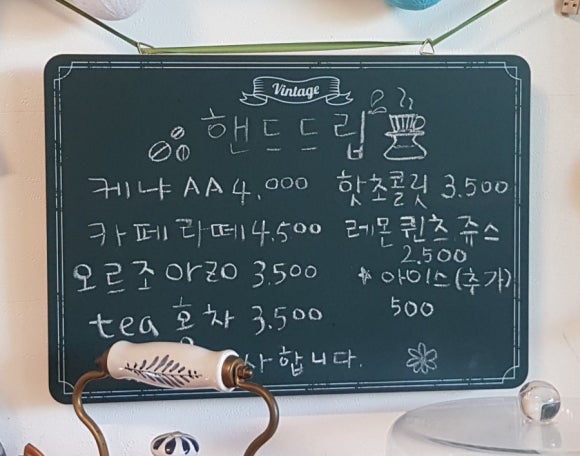 Vintage
핸드드립
케냐 AA 4.000
카페라떼 4.500
오르조 orzo 3.500
tea 홍차 3.500
사합니다.
핫초콜릿 3.500
레몬 퀸즈 쥬스
2.500
아이스(추가)
500